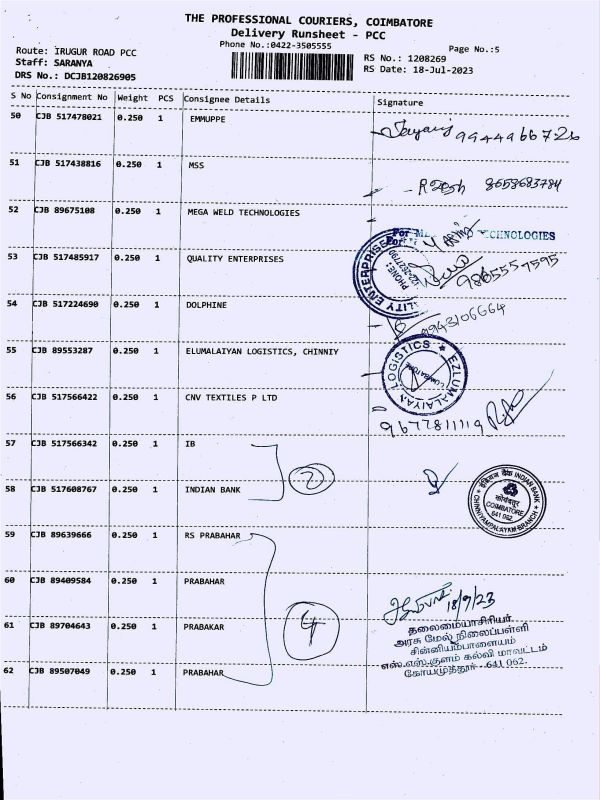 THE PROFESSIONAL COURIERS, COIMBATORE
Delivery Runsheet - PCC
Phone No.:0422-3505555
Page No.:5
Route: IRUGUR ROAD PCC
Staff: SARANYA
DRS No.: DCJB120826905
RS No.: 1208269
RS Date: 18-Jul-2023
S No Consignment No Weight PCS Consignee Details Signature
50 CJB 517478021 0.250 1 EMMUPPE
9944966726
51 CJB 517438816 0.250 1 MSS
8658683784
52 CJB 89675108 0.250 1 MEGA WELD TECHNOLOGIES
TECHNOLOGIES
53 CJB 517485917 0.250 1 QUALITY ENTERPRISES
9865557595
54 CJB 517224690 0.250 1 DOLPHINE
9943106664
55 CJB 89553287 0.250 1 ELUMALAIYAN LOGISTICS, CHINNIY
EZLUMALAIYAN LOGISTICS
COIMBATORE
56 CJB 517566422 0.250 1 CNV TEXTILES P LTD
9677811119
57 CJB 517566342 0.250 1 IB
2
58 CJB 517608767 0.250 1 INDIAN BANK
इंडियन बैंक INDIAN BANK
कोयंबत्तूर
COIMBATORE
641 062
CHINNIYAMPALAYAM BRANCH
59 CJB 89639666 0.250 1 RS PRABAHAR
60 CJB 89409584 0.250 1 PRABAHAR
4
18/7/23
61 CJB 89704643 0.250 1 PRABAKAR
தலைமையாசிரியர்
அரசு மேல் நிலைப்பள்ளி
சின்னியம்பாளையம்
எஸ்.எஸ்.குளம் கல்வி மாவட்டம்
கோயமுத்தூர் - 641 062.
62 CJB 89507049 0.250 1 PRABAHAR